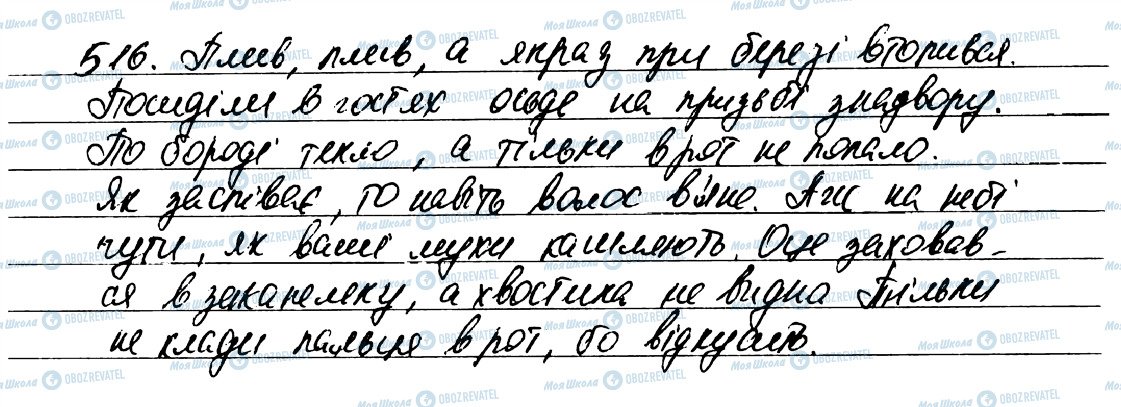 516. Плив, плив, а якраз при березі втопився.
Посиділи в гостях осьде на призьбі знадвору.
По бороді текло, а тільки в рот не попало.
Як заспіває, то навіть волос в'яне. Аж на небі
чути, як ваші мухи кашляють. Оце заховав-
ся в закапелку, а хвостика не видна Тільки
не клади пальця в рот, бо відкусить.